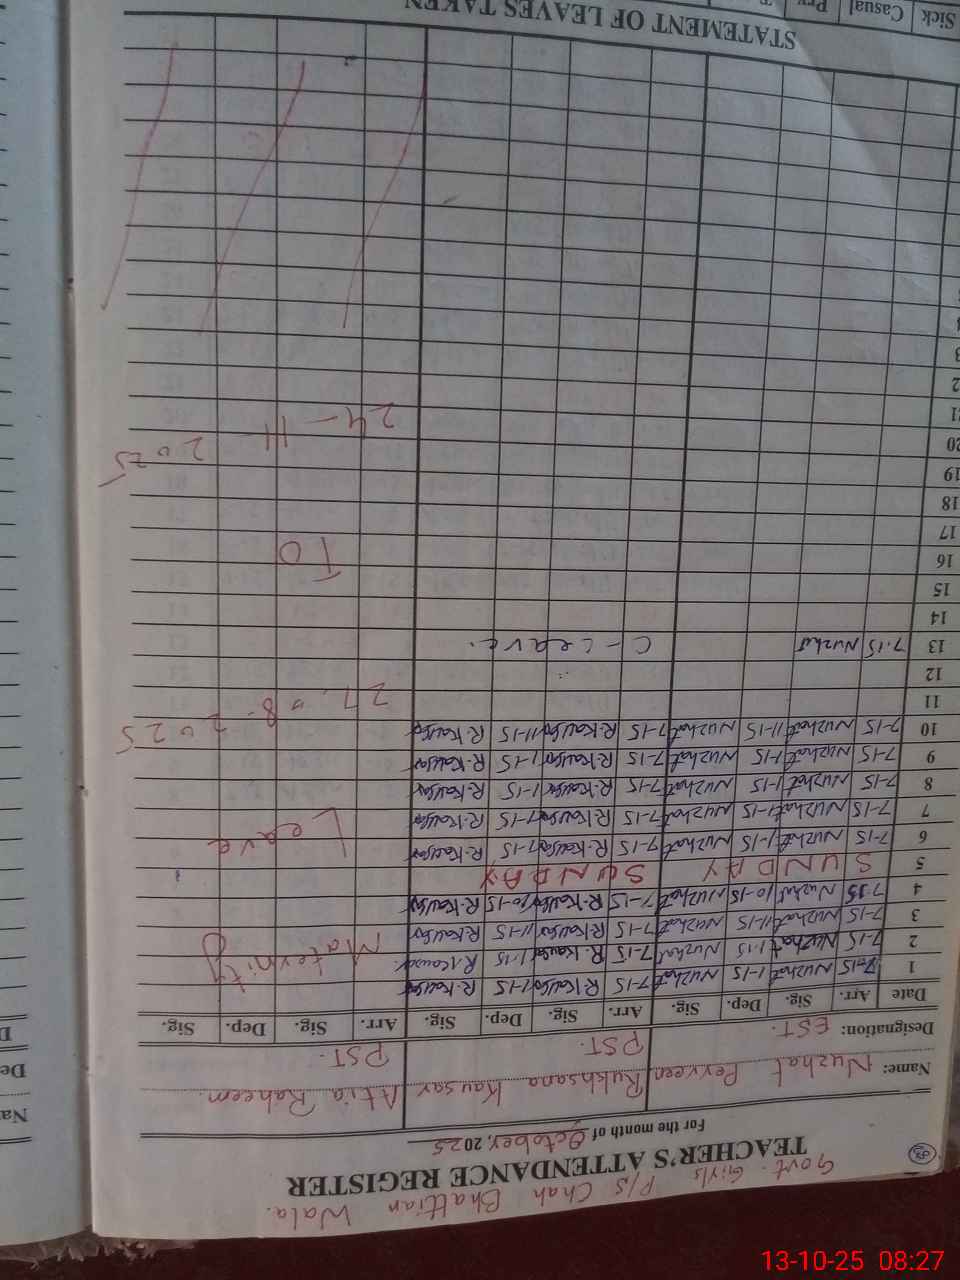 Govt. Girls P/S Chah Bhattian Wala.
TEACHER'S ATTENDANCE REGISTER
For the month of October, 2025
Name: Nuzhat Perveen Rukhsana Kausar Attia Raheem
Designation: EST. PST. PST.
Date Arr. Sig. Dep. Sig. Arr. Sig. Dep. Sig. Arr. Sig. Dep. Sig.
1 7-15 Nuzhat 1-15 Nuzhat 7-15 R.Kausar 1-15 R.Kausar
2 7-15 Nuzhat 1-15 Nuzhat 7-15 R.Kausar 1-15 R.Kausar
3 7-15 Nuzhat 11-15 Nuzhat 7-15 R.Kausar 11-15 R.Kausar
4 7-15 Nuzhat 10-15 Nuzhat 7-15 R.Kausar 10-15 R.Kausar
5 SUNDAY SUNDAY
6 7-15 Nuzhat 1-15 Nuzhat 7-15 R.Kausar 1-15 R.Kausar
7 7-15 Nuzhat 1-15 Nuzhat 7-15 R.Kausar 1-15 R.Kausar
8 7-15 Nuzhat 1-15 Nuzhat 7-15 R.Kausar 1-15 R.Kausar
9 7-15 Nuzhat 1-15 Nuzhat 7-15 R.Kausar 1-15 R.Kausar
10 7-15 Nuzhat 11-15 Nuzhat 7-15 R.Kausar 11-15 R.Kausar
11
12
13 7-15 Nuzhat C-Leave.
14
15
16
17
18
19
20
21
Maternity
Leave
27-08-2025
TO
24-11-2025
STATEMENT OF LEAVES TAKEN
Sick Casual
13-10-25 08:27